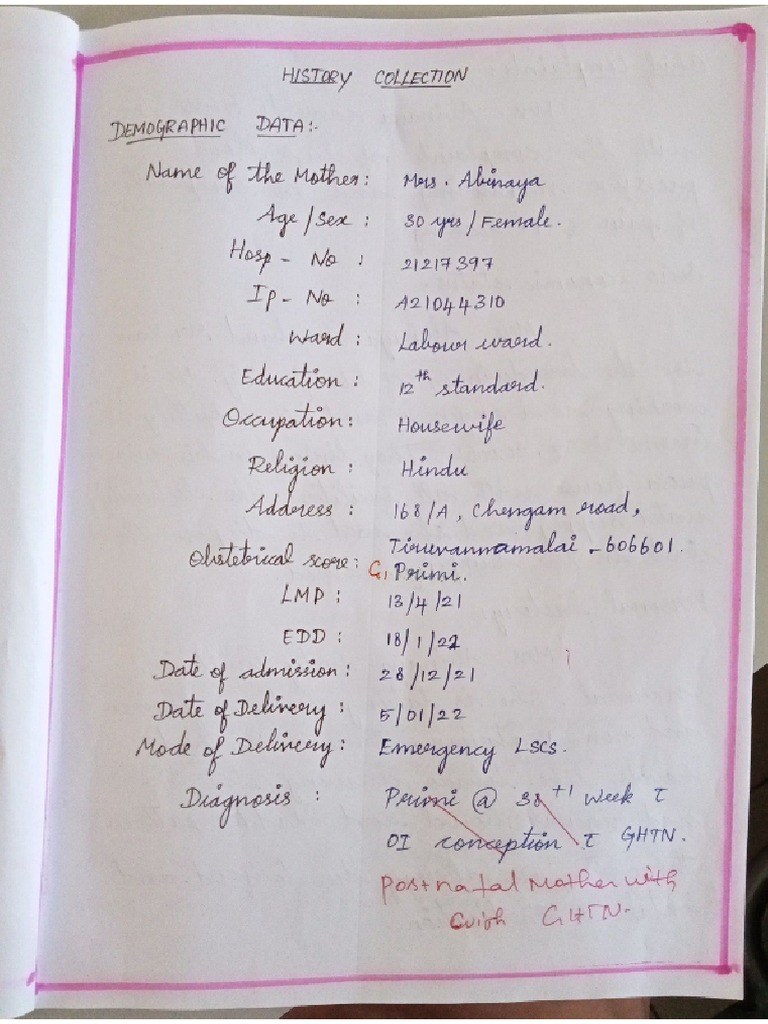 HISTORY COLLECTION
DEMOGRAPHIC DATA:-
Name of the Mother: Mrs. Abinaya
Age/Sex: 30 yrs/Female.
Hosp-No: 21217397
Ip-No: A21044310
Ward: Labour ward.
Education: 12th standard.
Occupation: Housewife
Religion: Hindu
Address: 168/A, Chengam road,
Tiruvannamalai - 606601.
Obstetrical score: G1 Primi.
LMP: 13/4/21
EDD: 18/1/22
Date of admission: 28/12/21
Date of Delivery: 5/01/22
Mode of Delivery: Emergency LSCS.
Diagnosis: Primi @ 38 +1 week c̄
OI conception c̄ GHTN.
Postnatal Mother with
GHTN.